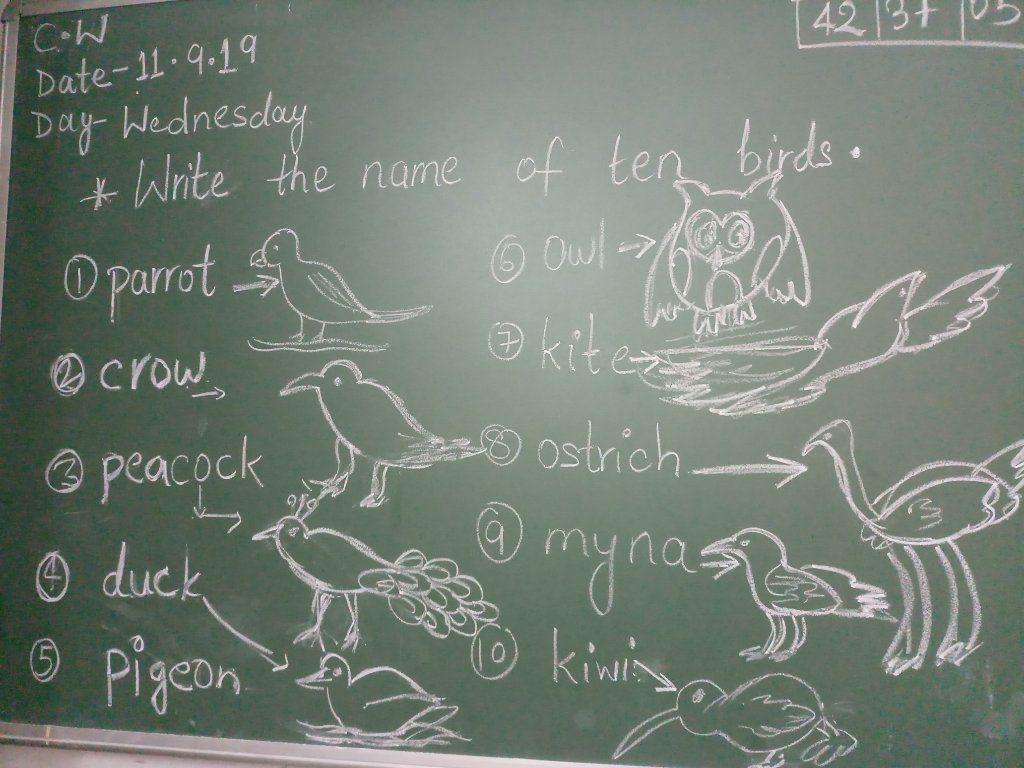 C.W
Date-11.9.19
Day-Wednesday
42 37 05
* Write the name of ten birds.
① parrot
② crow
③ peacock
④ duck
⑤ pigeon
⑥ owl
⑦ kite
⑧ ostrich
⑨ myna
⑩ kiwi